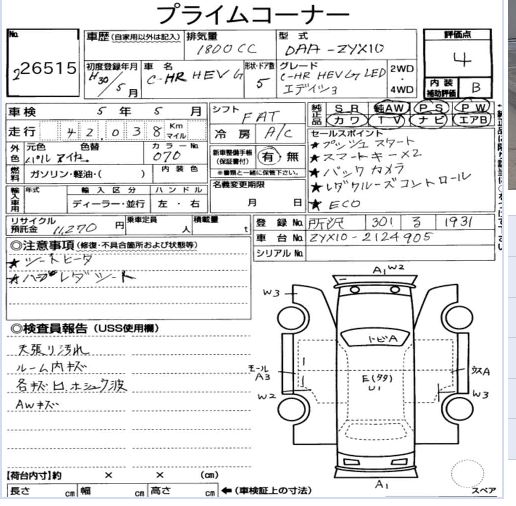 プライムコーナー
No. 26515
車歴 (自家用以外は記入) 排気量 1800CC 型式 DAA-ZYX10 評価点 4
初度登録年月 H30年5月 車名 C-HR HEV G 形状・ドア数 5 グレード C-HR HEV G LED エディション 2WD・4WD 内装補助評価 B
車検 5年5月 シフト FAT 純正品 SR 革AW PS PW
走行 42038 Km マイル 冷房 A/C カワ TV ナビ エアB
外色 元色 パール 色替 カラーNo. 070 新車整備手帳(保証書付) 有 無
燃料 ガソリン・軽油・( ) 内装色 ※書類と一緒に保管して下さい。
セールスポイント
★プッシュスタート
★スマートキー×2
★バックカメラ
★レダクルーズコントロール
★ECO
輸入車用 年式 輸入区分 ハンドル 名義変更期限
ディーラー・並行 左・右 月 日
リサイクル預託金 11,270円 乗車定員 人 積載量 t
登録No. 所沢 301 る 1931
車台No. ZYX10-2124905
シリアルNo.
◎注意事項 (修復・不具合箇所および状態等)
★シートヒータ
★ハーフレダシート
◎検査員報告 (USS使用欄)
天張り汚れ
ルーム内キズ
各キズ
AWキズ
A1 W2
W3 W3
トビA
モールA3 E(タタ) U1 ウスA
W2 W3
A1
スペア
【荷台内寸】約 × × (cm)
長さ cm 幅 cm 高さ cm ←(車検証上の寸法)